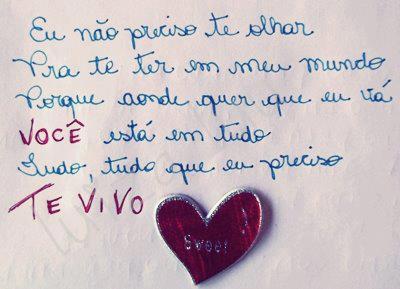 Eu não preciso te olhar
Pra te ter em meu mundo
Porque aonde quer que eu vá
VOCÊ está em tudo
Tudo, tudo que eu preciso
TE VIVO
Sweet